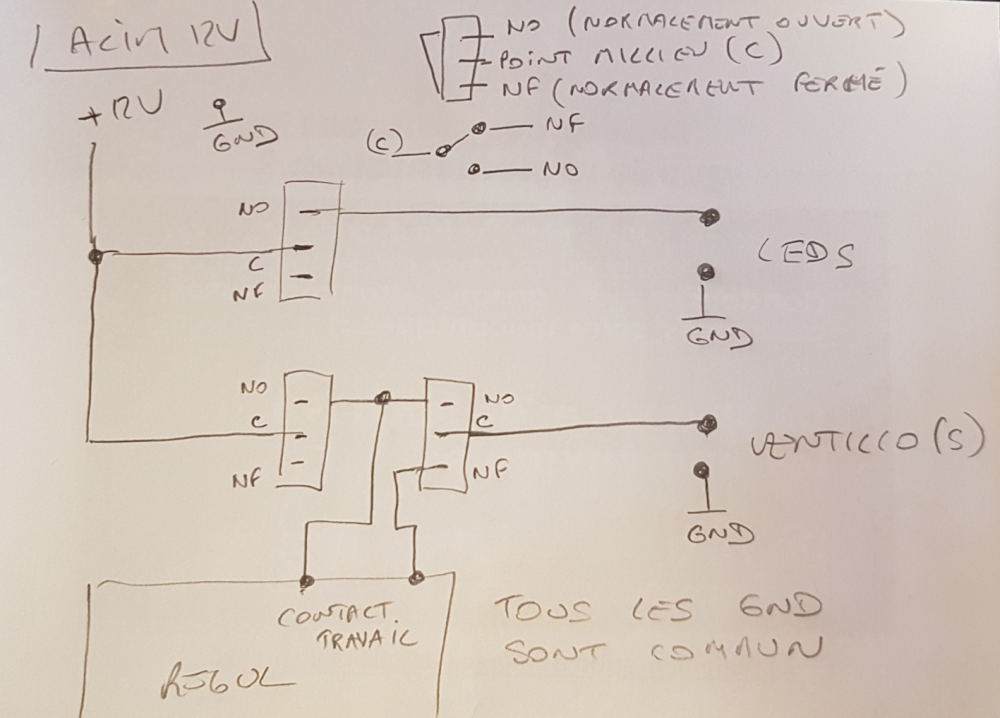 Alim 12V
NO (NORMALEMENT OUVERT)
POINT MILLIEU (C)
NF (NORMALEMENT FERMÉ)
+12V
GND
(C)
NF
NO
NO
C
NF
LEDS
GND
NO
C
NF
NO
C
NF
VENTILLO(S)
GND
CONTACT.
TRAVAIL
REGUL
TOUS LES GND
SONT COMMUN